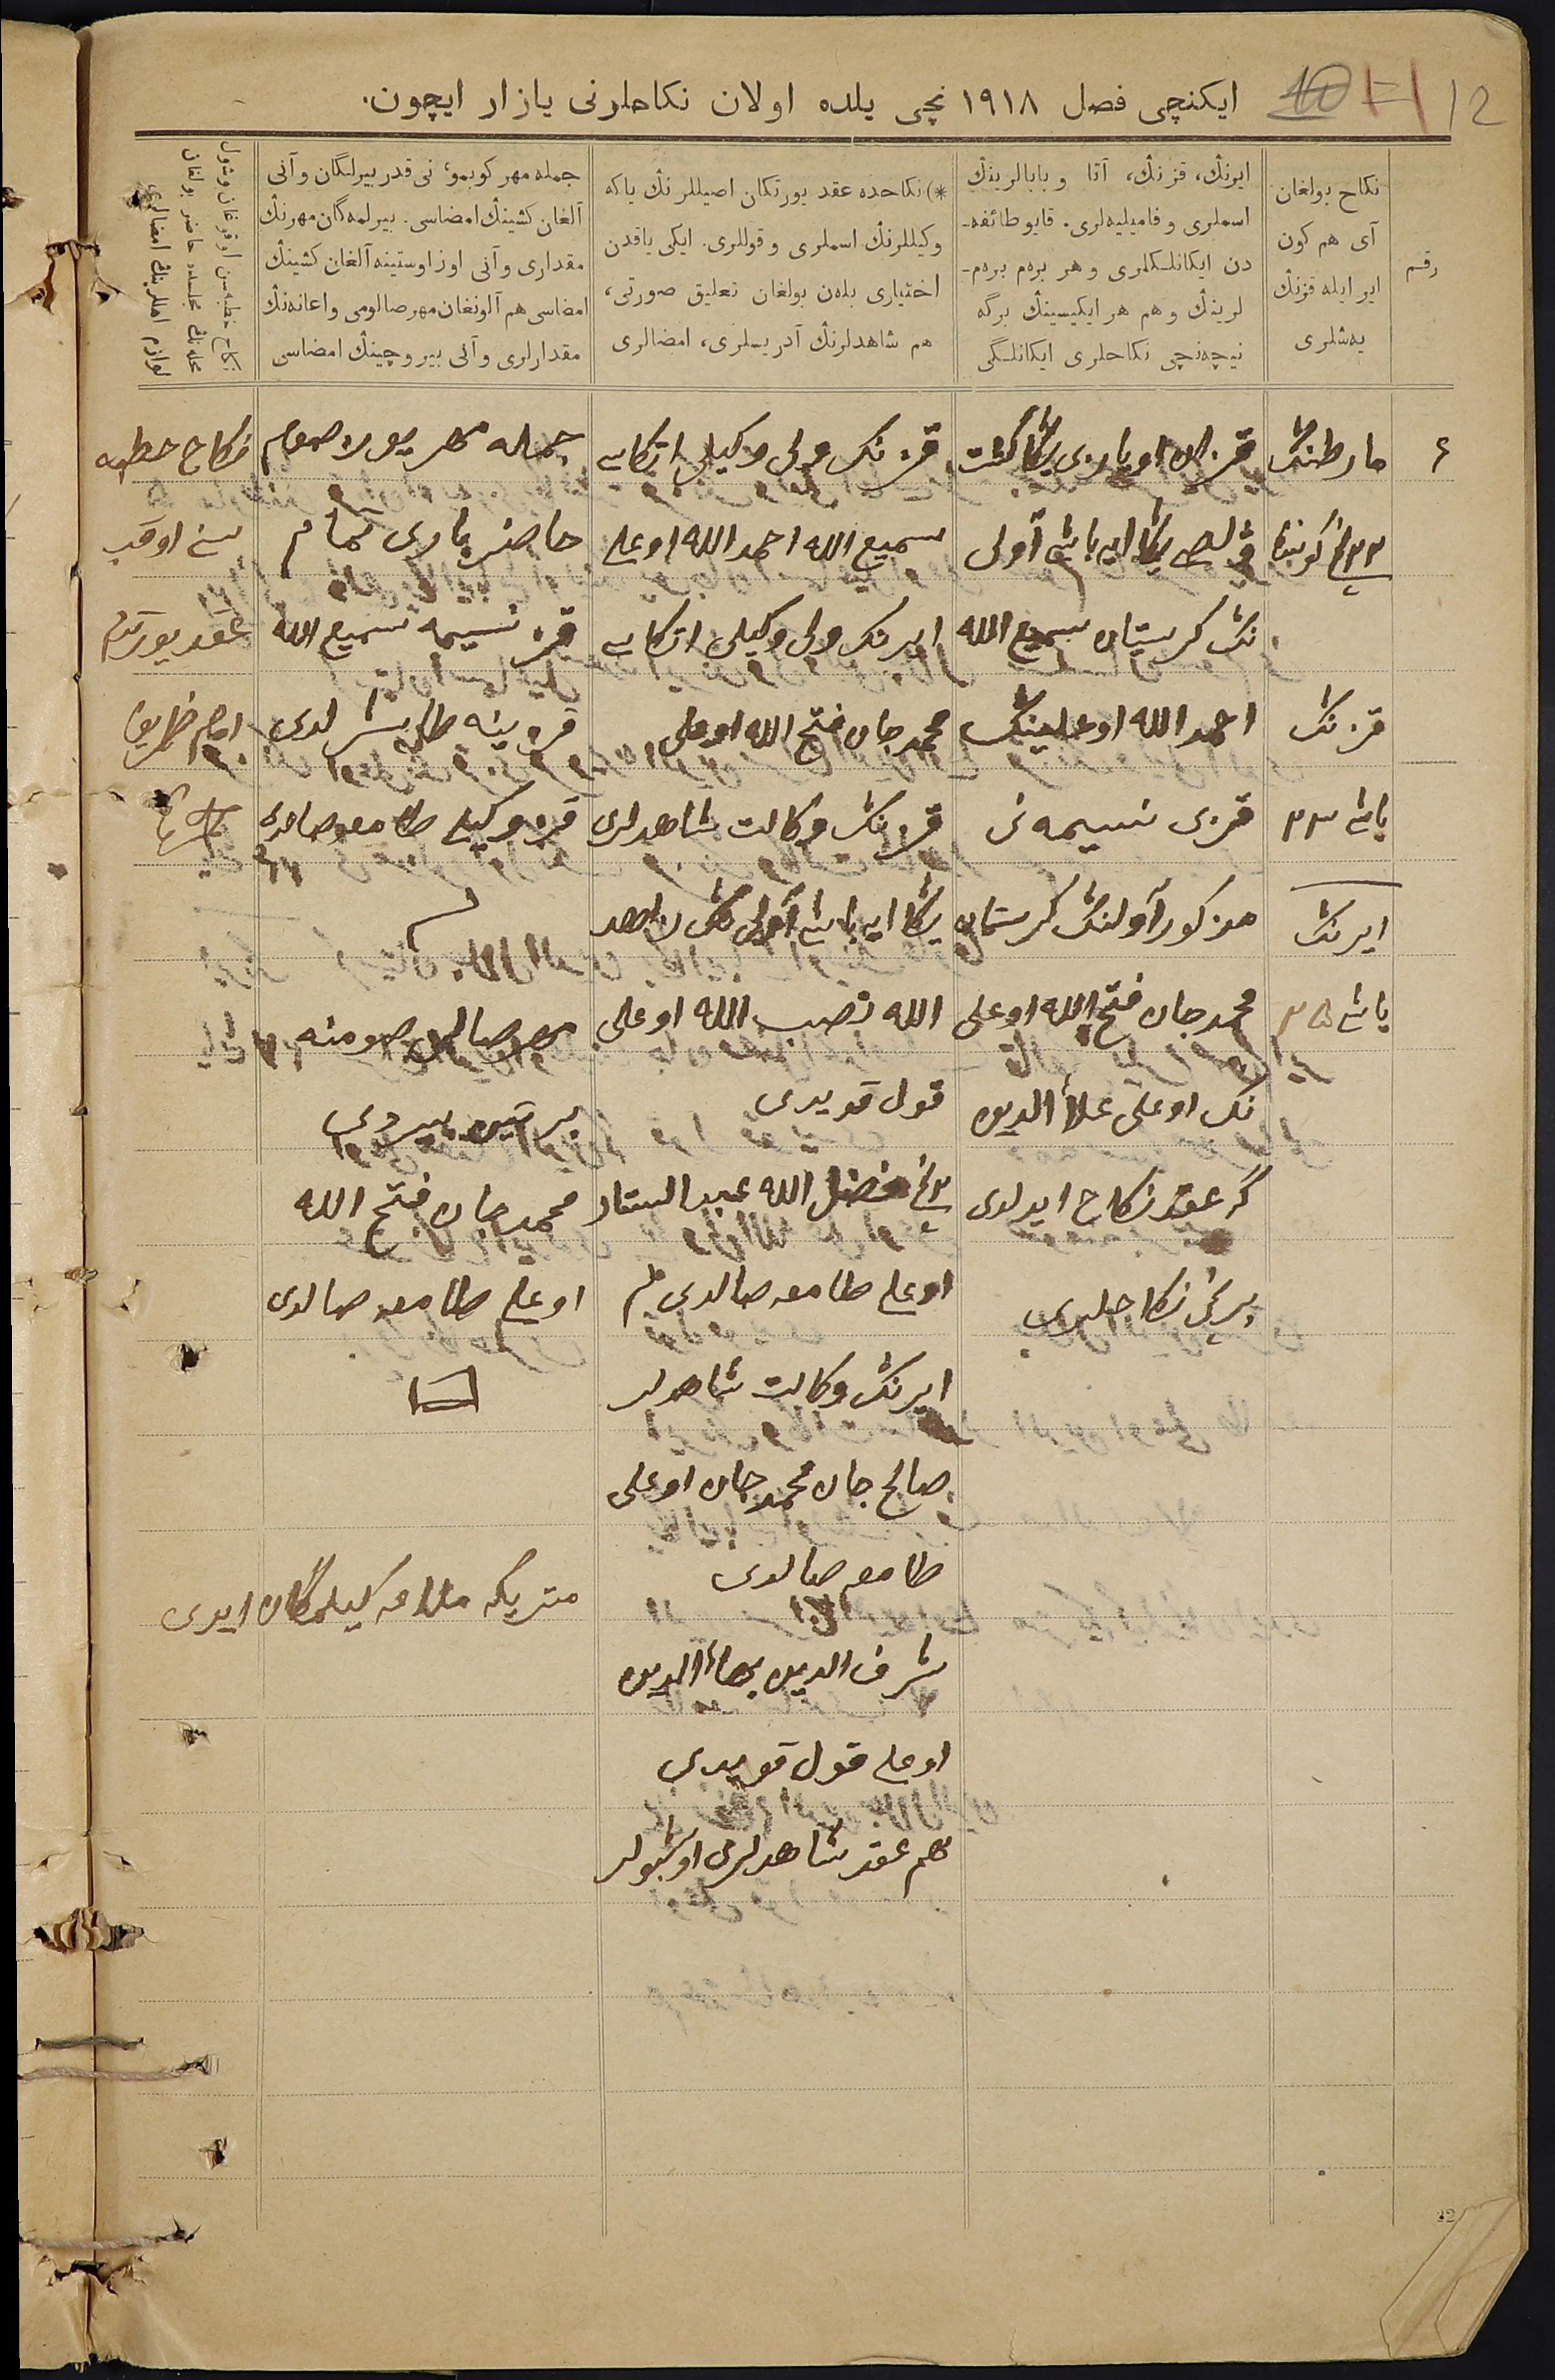 12
ایکنچی فصل ۱۹۱۸ نچی یلده اولان نکاحلرنی یازار ایچون.
رقم
نکاح بولغان
آی هم کون
ایر ایله قزنڭ
یه‌شلری
ایرنڭ، قزنڭ، آتا و بابالرینڭ
اسملری و فامیلیه‌لری. قایو طائفه-
دن ایکانلكلری و هر برەم برەم-
لرینڭ و هم هر ایکیسینڭ برگه
نیچه‌نچی نکاحلری ایکانلگی
*) نکاحده عقد یورتکان اصیللرنڭ یاکه
وکیللرنڭ اسملری و قوللری. ایکی یاقدن
اختیاری بله‌ن بولغان تعلیق صورتی،
هم شاهدلرنڭ آدریسلری، امضالری
جمله مهر کوبمو، نی قدر بیرلگان و آنی
آلغان کشینڭ امضاسی. بیرلمه‌گان مهرنڭ
مقداری و آنی اوز اوستینه آلغان کشینڭ
امضاسی هم آلونغان مهر صالومی و اعانه‌نڭ
مقدارلری و آنی بیروچینڭ امضاسی
نکاح خطبه‌سن اوقوغان و شول
محله‌نڭ مجلسده حاضر بولغان
لوازم اهللرینڭ امضالری
٤
مارطنڭ
۲۲ نچی کوننده
قزنڭ
یاشی ۲۳
ایرنڭ
یاشی ۲۵
قزان اویازی
آولی
نڭ کرستیان سمیع الله
احمد الله اوغلینڭ
قزی نسیمه نی
مذکور آولنڭ کرستیان
محمدجان فتح الله اوغلی
نڭ اوغلی علاء الدین
گه عقد نکاح ایدلدی
برنچی نکاحلری
قزنڭ ولی وکیلی اتکاسی
سمیع الله احمد الله اوغلی
ایرنڭ ولی وکیلی اتکاسی
محمدجان فتح الله اوغلی
قزنڭ وکالت شاهدلری
الله نصیب الله اوغلی
قول قویدی
۲ نچی فضل الله عبد الستار
اوغلی طامغه صالدی
ایرنڭ وکالت شاهدلر
صالح جان محمدجان اوغلی
طامغه صالدی
شرف الدین بهاء الدین
اوغلی قول قویدی
هم عقد شاهدلری اوشبولر
جمله مهر یوز صوم
حاضر باری تمام
قز نسیمه سمیع الله
قزینه طابشرلدی
قز وکیلی طامغه صالدی
مهر صالومی صومنه
بر تین بیردی
محمدجان فتح الله
اوغلی طامغه صالدی
نکاح خطبه
سنی اوقب
عقد یورتدم
متریکه ملاغه کیلمگان ایدی